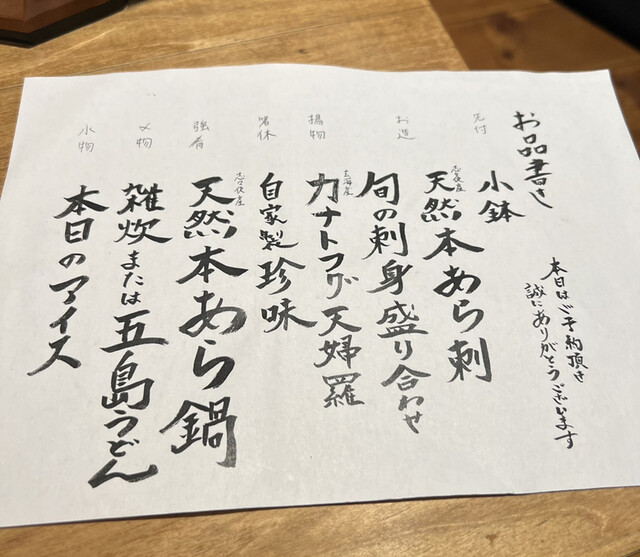 お品書き
本日はご予約頂き
誠にありがとうございます
先付
小鉢
天然本あら刺
お造
旬の刺身盛り合わせ
揚物
玄海産
カナトフグ天婦羅
箸休
自家製珍味
強肴
天然本あら鍋
〆物
雑炊または五島うどん
水物
本日のアイス